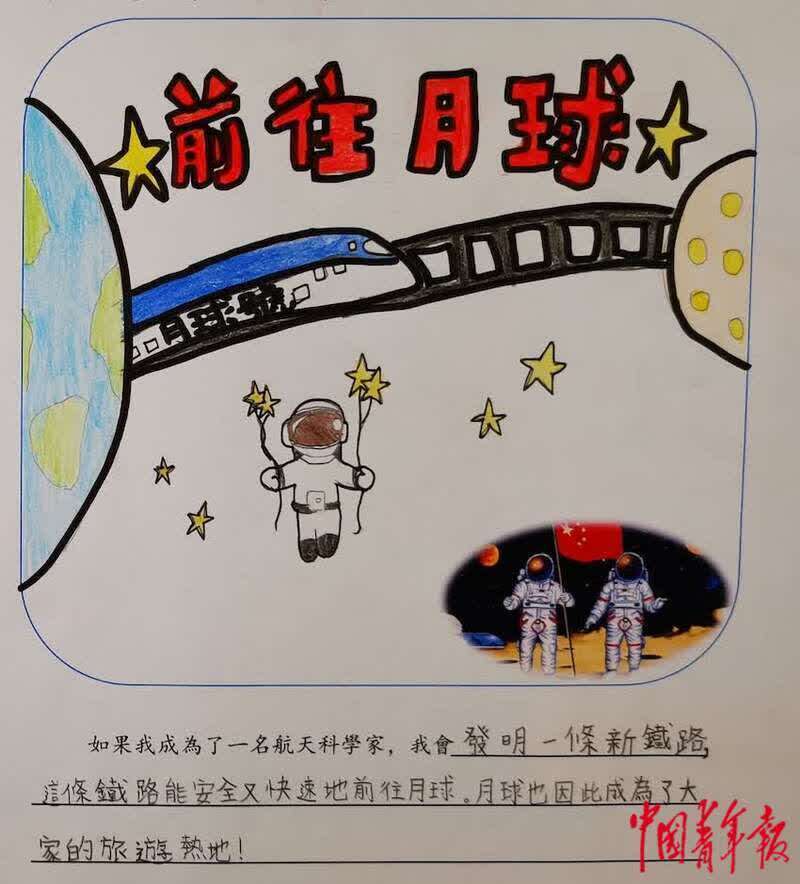 前往月球
月球號
如果我成為了一名航天科學家，我會發明一條新鐵路，
這條鐵路能安全又快速地前往月球。月球也因此成為了大
家的旅遊熱地！
中国青年报